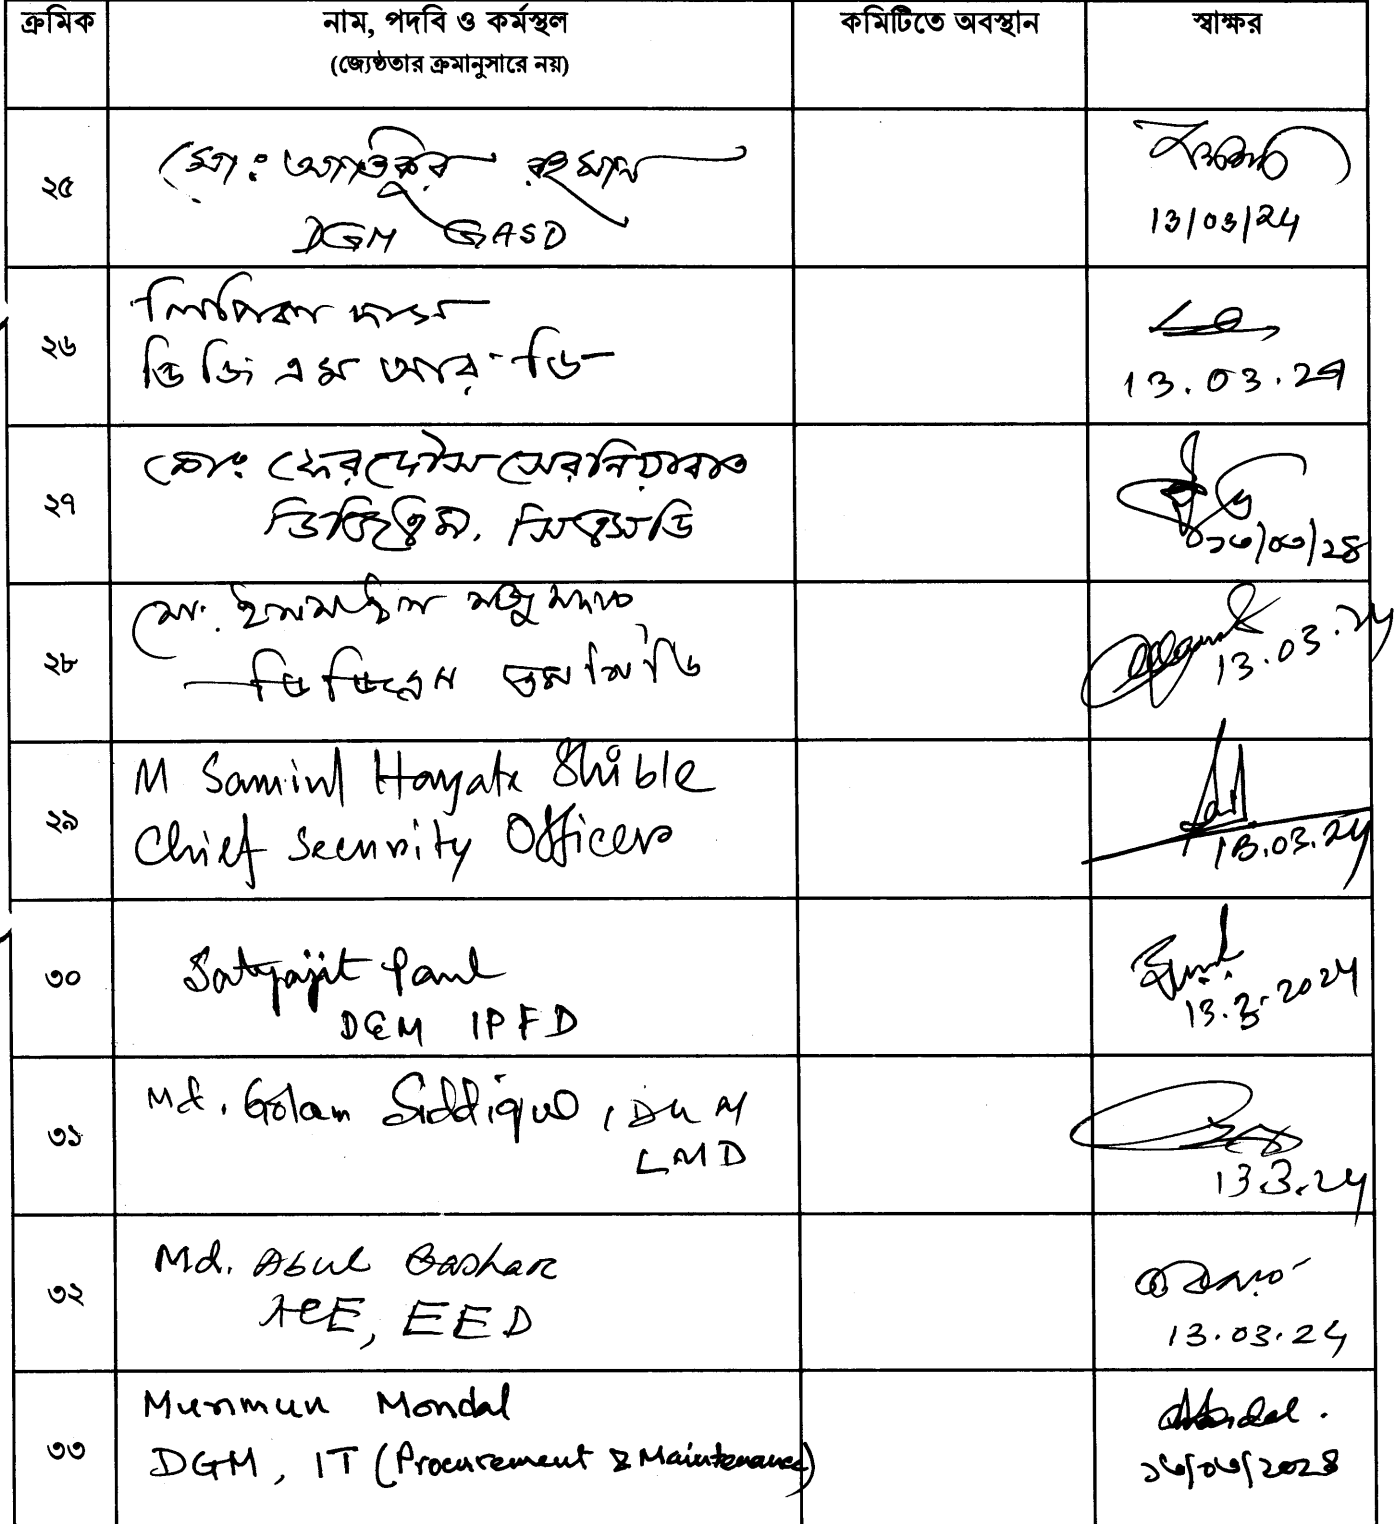 ক্রমিক নাম, পদবি ও কর্মস্থল কমিটিতে অবস্থান স্বাক্ষর
(জ্যেষ্ঠতার ক্রমানুসারে নয়)
২৫ মো: আতিকুর রহমান
DGM GASD 13/03/24
২৬ লিপিকা দাস
ডি জি এম আর ডি 13.03.24
২৭ মোঃ ফেরদৌস সেরনিয়াবাত
ডিজিএম. সিএসডি ১৩/০৩/২৪
২৮ মো. ইসমাইল মজুমদার
ডিজিএম 13.03.24
২৯ M Samiul Hayate Shible
Chief Security Officer 13.03.24
৩০ Satyajit Paul
DGM IPFD 13.3.2024
৩১ Md. Golam Siddique, DGM
LMD 13.3.24
৩২ Md. Abul Bashar
ACE, EED 13.03.24
৩৩ Munmun Mondal Mondal.
DGM, IT (Procurement & Maintenance) ১৩/০৩/২০২৪